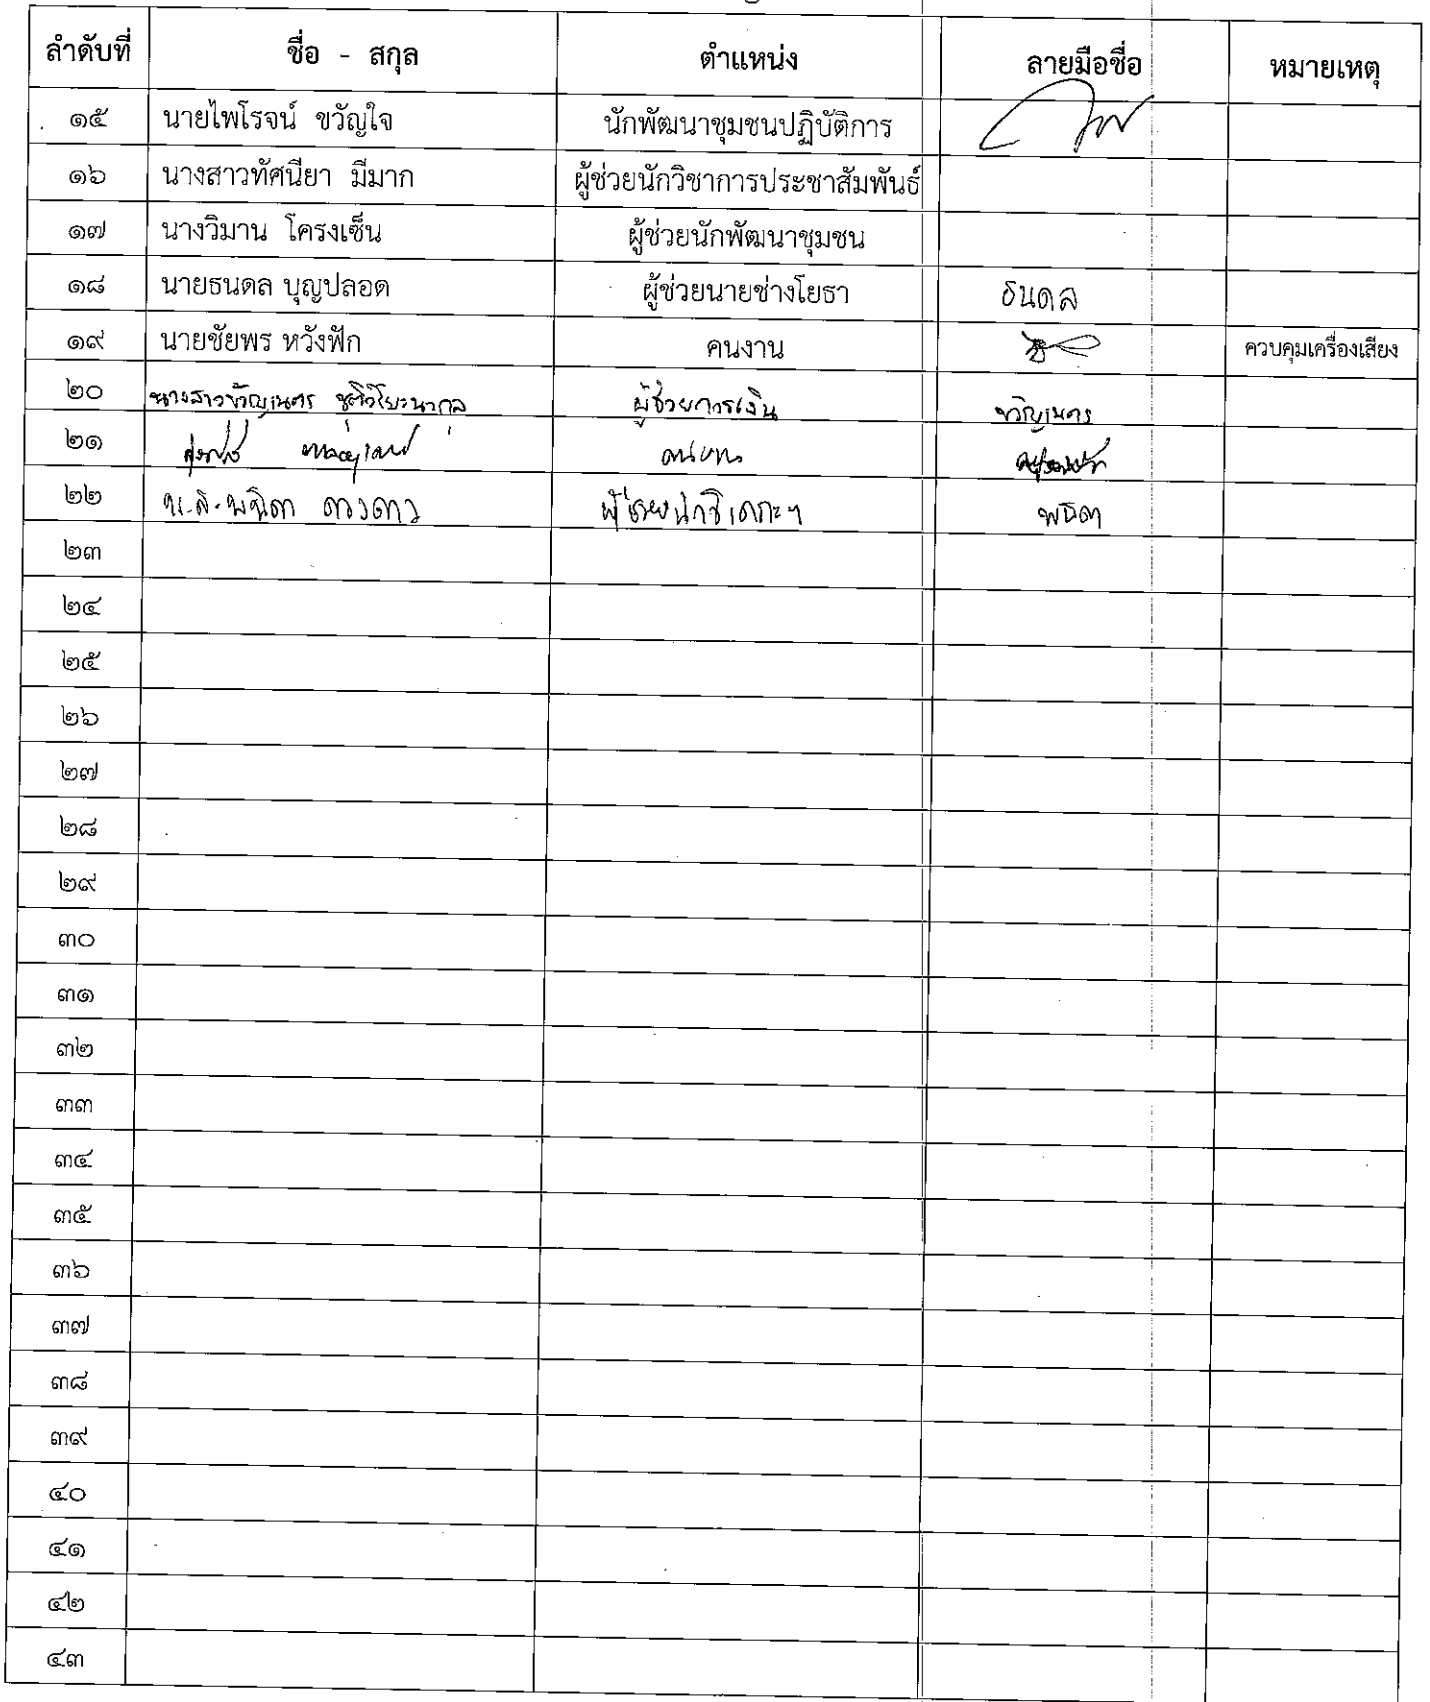 ลำดับที่ ชื่อ - สกุล ตำแหน่ง ลายมือชื่อ หมายเหตุ
๑๕ นายไพโรจน์ ขวัญใจ นักพัฒนาชุมชนปฏิบัติการ
๑๖ นางสาวทัศนียา มีมาก ผู้ช่วยนักวิชาการประชาสัมพันธ์
๑๗ นางวิมาน โครงเซ็น ผู้ช่วยนักพัฒนาชุมชน
๑๘ นายธนดล บุญปลอด ผู้ช่วยนายช่างโยธา ธนดล
๑๙ นายชัยพร หวังฟัก คนงาน ควบคุมเครื่องเสียง
๒๐ นางสาวขวัญเนตร ผู้ช่วยการเงิน ขวัญเนตร
๒๑ คนงาน
๒๒ น.ส.พนิดา ดวงดาว พนิดา
๒๓
๒๔
๒๕
๒๖
๒๗
๒๘
๒๙
๓๐
๓๑
๓๒
๓๓
๓๔
๓๕
๓๖
๓๗
๓๘
๓๙
๔๐
๔๑
๔๒
๔๓